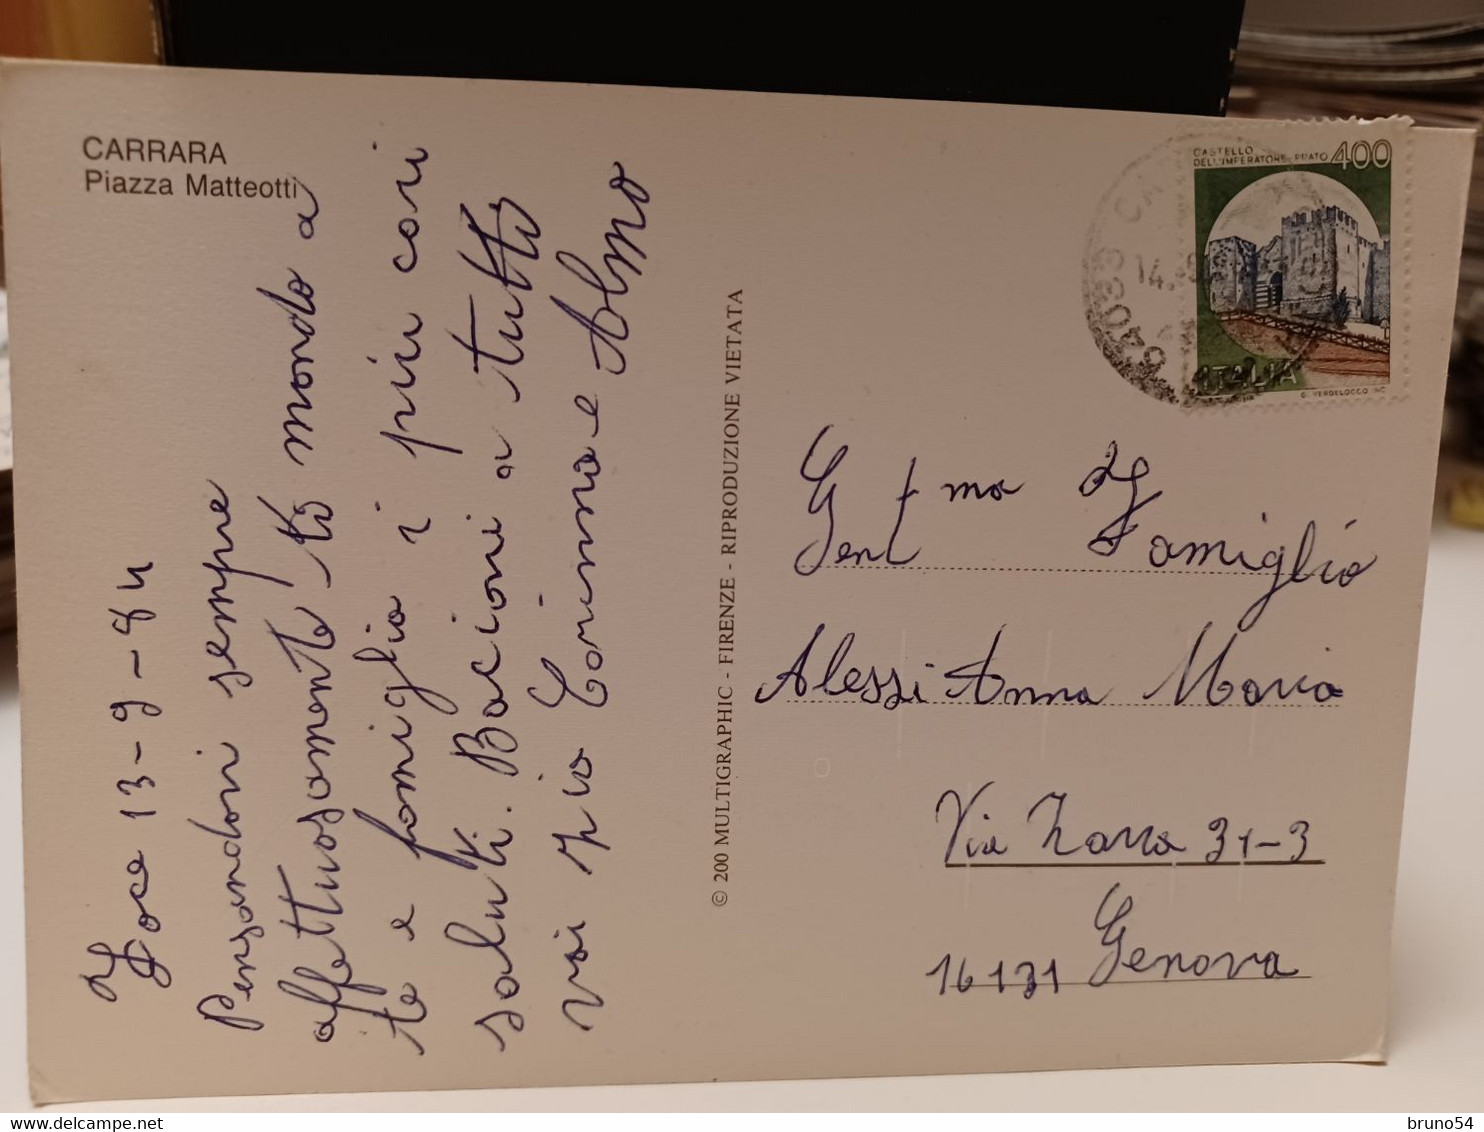 CARRARA
Piazza Matteotti
Foce 13-9-84
Pensandovi sempre
affettuosamente ti mando a
te e famiglia i più cari
saluti. Bacioni a tutti
voi zio Corinna e Almo
© 200 MULTIGRAPHIC - FIRENZE - RIPRODUZIONE VIETATA
CASTELLO
DELL'IMPERATORE - PRATO 400
ITALIA
G. VERDELOCCO INC.
54033 CA
14.
Gent ma Famiglia
Alessi Anna Maria
Via Zara 31-3
16131 Genova
bruno54